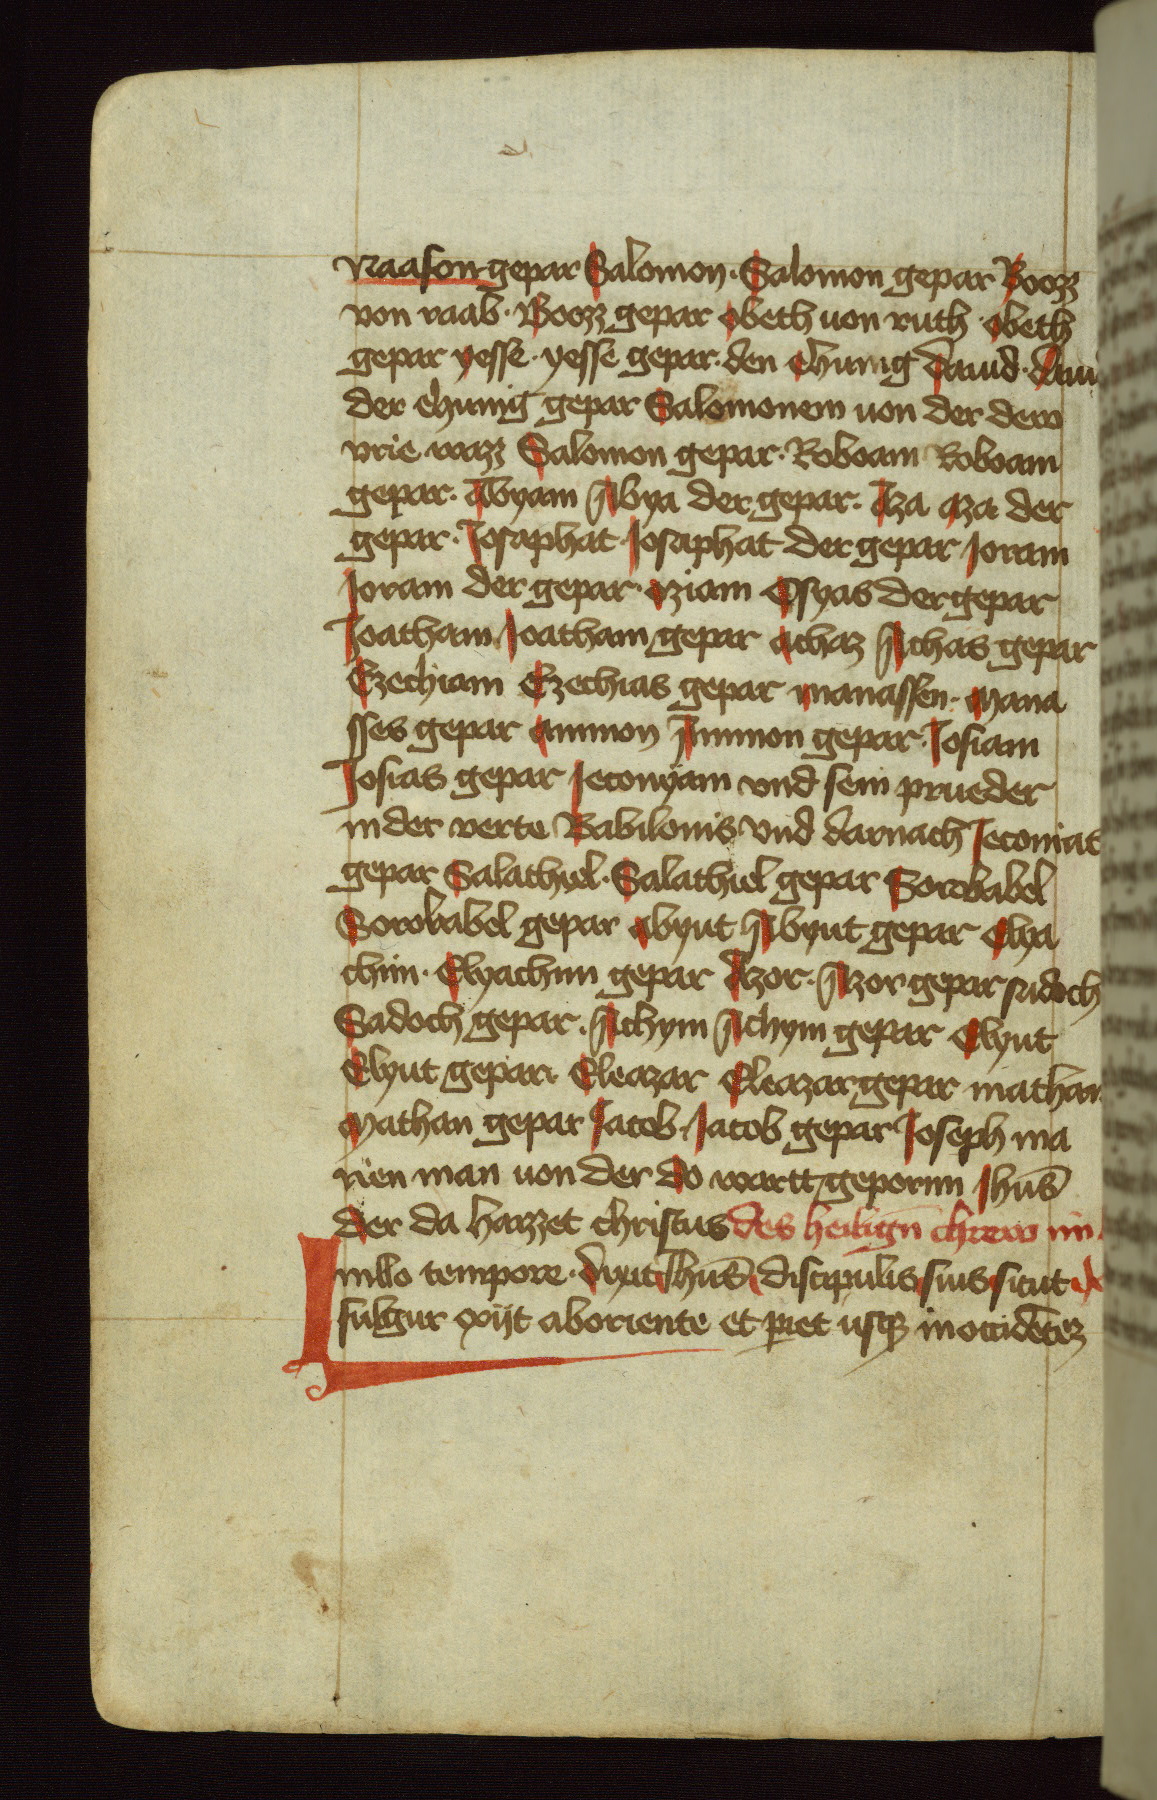 Naason gepar Salomon · Salomon gepar Boozz
von raab · Boozz gepar obeth uon ruth · obeth
gepar yesse · yesse gepar · den chunig dauid · dauid
der chunig gepar Salomonem uon der dew
vrie wazz Salomon gepar · Roboam Roboam
gepar · Abyam Abya der gepar · Aza aza der
gepar · Josaphat · Josaphat der gepar Joram
Joram der gepar · oziam Osyas der gepar
Joatham Joatham gepar achaz Achas gepar
Ezechiam Ezechias gepar manassen · Mana
sses gepar ammon Ammon gepar · Josiam
Josias gepar Jeconyam vnd sein prueder
in der verte Babilonis vnd darnach Jeconias
gepar Salathyel · Salathiel gepar Sorobabel
Sorobabel gepar abyut Abyut gepar Elya
chim · Elyachim gepar Azor · Azor gepar sadoch
Sadoch gepar · Achym Achym gepar Elyut
Elyut gepar Eleazar Eleazar gepar mathan
Mathan gepar Jacob · Jacob gepar Joseph ma
rien man uon der do wartt gepornn Jhus̄
der da hazzet christus des heilign̄ chrewo
In illo tempore · dyxit Jhus̄ discipulis suis sicut
fulgur exijt ab oriente et paret usq̄ in occidētez